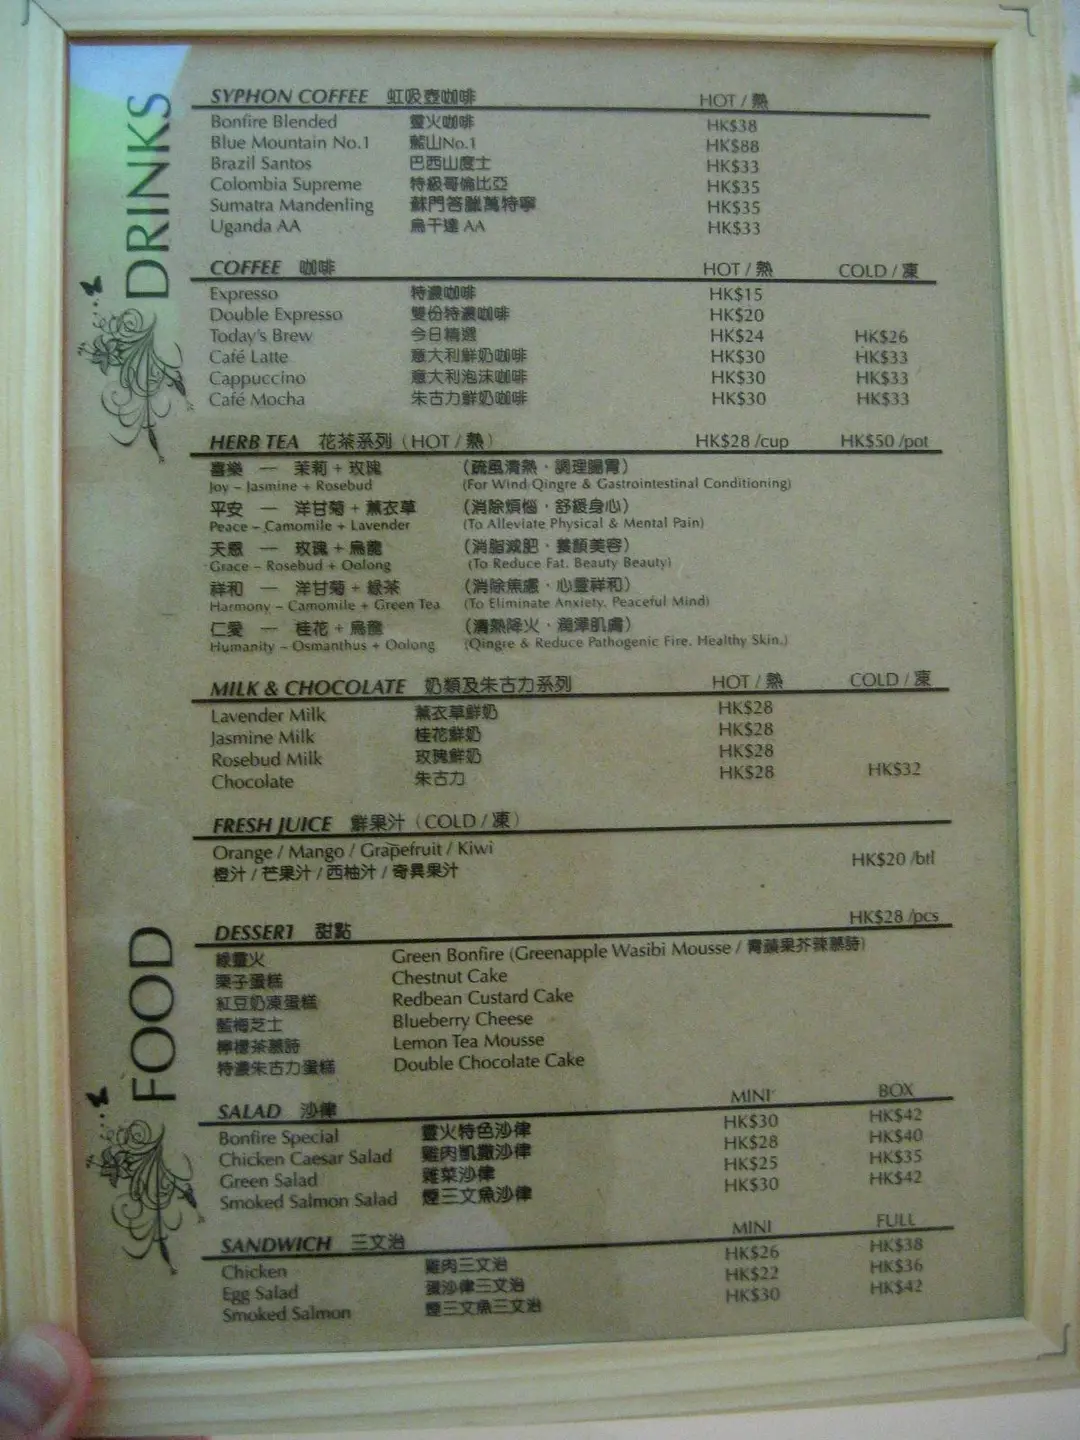 DRINKS
SYPHON COFFEE 虹吸壺咖啡 HOT / 熱
Bonfire Blended 靈火咖啡 HK$38
Blue Mountain No.1 藍山No.1 HK$88
Brazil Santos 巴西山度士 HK$33
Colombia Supreme 特級哥倫比亞 HK$35
Sumatra Mandenling 蘇門答臘萬特寧 HK$35
Uganda AA 烏干達 AA HK$33
COFFEE 咖啡 HOT / 熱 COLD / 凍
Expresso 特濃咖啡 HK$15
Double Expresso 雙份特濃咖啡 HK$20
Today's Brew 今日精選 HK$24 HK$26
Café Latte 意大利鮮奶咖啡 HK$30 HK$33
Cappuccino 意大利泡沫咖啡 HK$30 HK$33
Café Mocha 朱古力鮮奶咖啡 HK$30 HK$33
HERB TEA 花茶系列 (HOT / 熱) HK$28 /cup HK$50 /pot
喜樂 — 茉莉 + 玫瑰 (疏風清熱・調理腸胃)
Joy – Jasmine + Rosebud (For Wind Qingre & Gastrointestinal Conditioning)
平安 — 洋甘菊 + 薰衣草 (消除煩惱・舒緩身心)
Peace – Camomile + Lavender (To Alleviate Physical & Mental Pain)
天恩 — 玫瑰 + 烏龍 (消脂減肥・養顏美容)
Grace – Rosebud + Oolong (To Reduce Fat. Beauty Beauty)
祥和 — 洋甘菊 + 綠茶 (消除焦慮・心靈祥和)
Harmony – Camomile + Green Tea (To Eliminate Anxiety. Peaceful Mind)
仁愛 — 桂花 + 烏龍 (清熱降火・潤澤肌膚)
Humanity – Osmanthus + Oolong (Qingre & Reduce Pathogenic Fire. Healthy Skin.)
MILK & CHOCOLATE 奶類及朱古力系列 HOT / 熱 COLD / 凍
Lavender Milk 薰衣草鮮奶 HK$28
Jasmine Milk 桂花鮮奶 HK$28
Rosebud Milk 玫瑰鮮奶 HK$28
Chocolate 朱古力 HK$28 HK$32
FRESH JUICE 鮮果汁 (COLD / 凍)
Orange / Mango / Grapefruit / Kiwi
橙汁 / 芒果汁 / 西柚汁 / 奇異果汁 HK$20 /btl
FOOD
DESSERT 甜點 HK$28 /pcs
綠靈火 Green Bonfire (Greenapple Wasibi Mousse / 青蘋果芥辣慕詩)
栗子蛋糕 Chestnut Cake
紅豆奶凍蛋糕 Redbean Custard Cake
藍梅芝士 Blueberry Cheese
檸檬茶慕詩 Lemon Tea Mousse
特濃朱古力蛋糕 Double Chocolate Cake
SALAD 沙律 MINI BOX
Bonfire Special 靈火特色沙律 HK$30 HK$42
Chicken Caesar Salad 雞肉凱撒沙律 HK$28 HK$40
Green Salad 雜菜沙律 HK$25 HK$35
Smoked Salmon Salad 煙三文魚沙律 HK$30 HK$42
SANDWICH 三文治 MINI FULL
Chicken 雞肉三文治 HK$26 HK$38
Egg Salad 蛋沙律三文治 HK$22 HK$36
Smoked Salmon 煙三文魚三文治 HK$30 HK$42